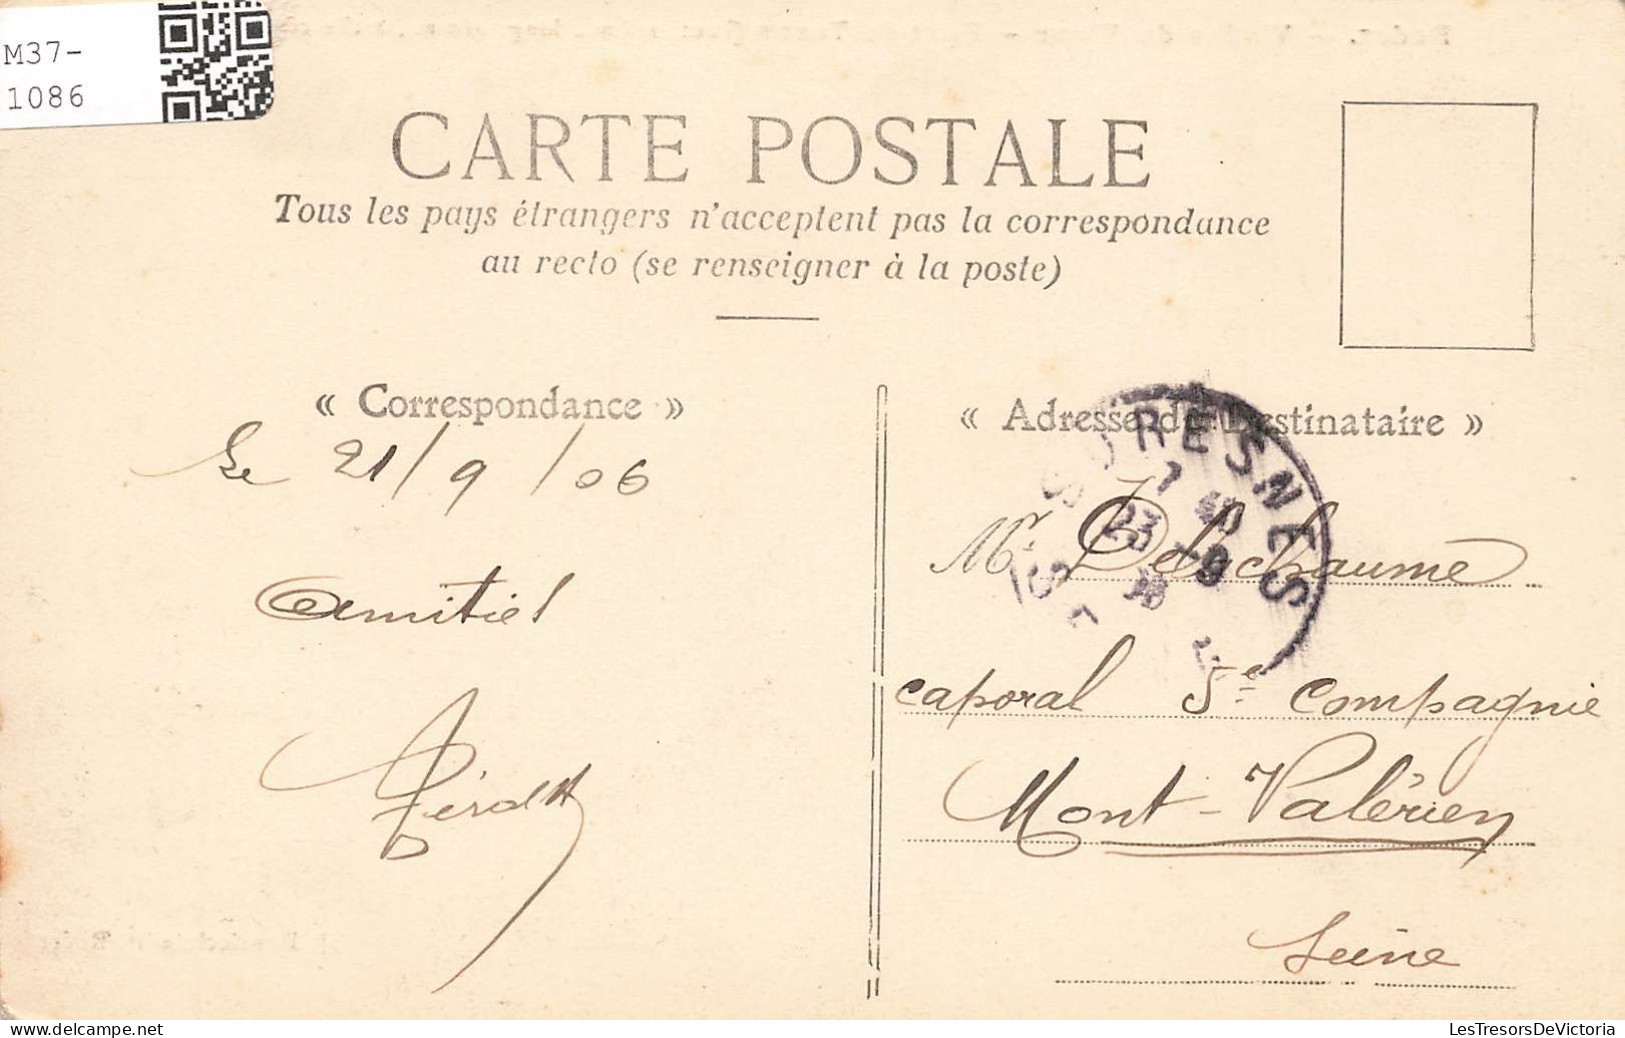 M37-
1086
CARTE POSTALE
Tous les pays étrangers n'acceptent pas la correspondance
au recto (se renseigner à la poste)
« Correspondance »
Le 21/9/06
Amitiés
« Adresse du Destinataire »
SURESNES
7 40
23 -9
06
Mr Delachaume
caporal 5e Compagnie
Mont-Valérien
Seine
LesTresorsDeVictoria.com